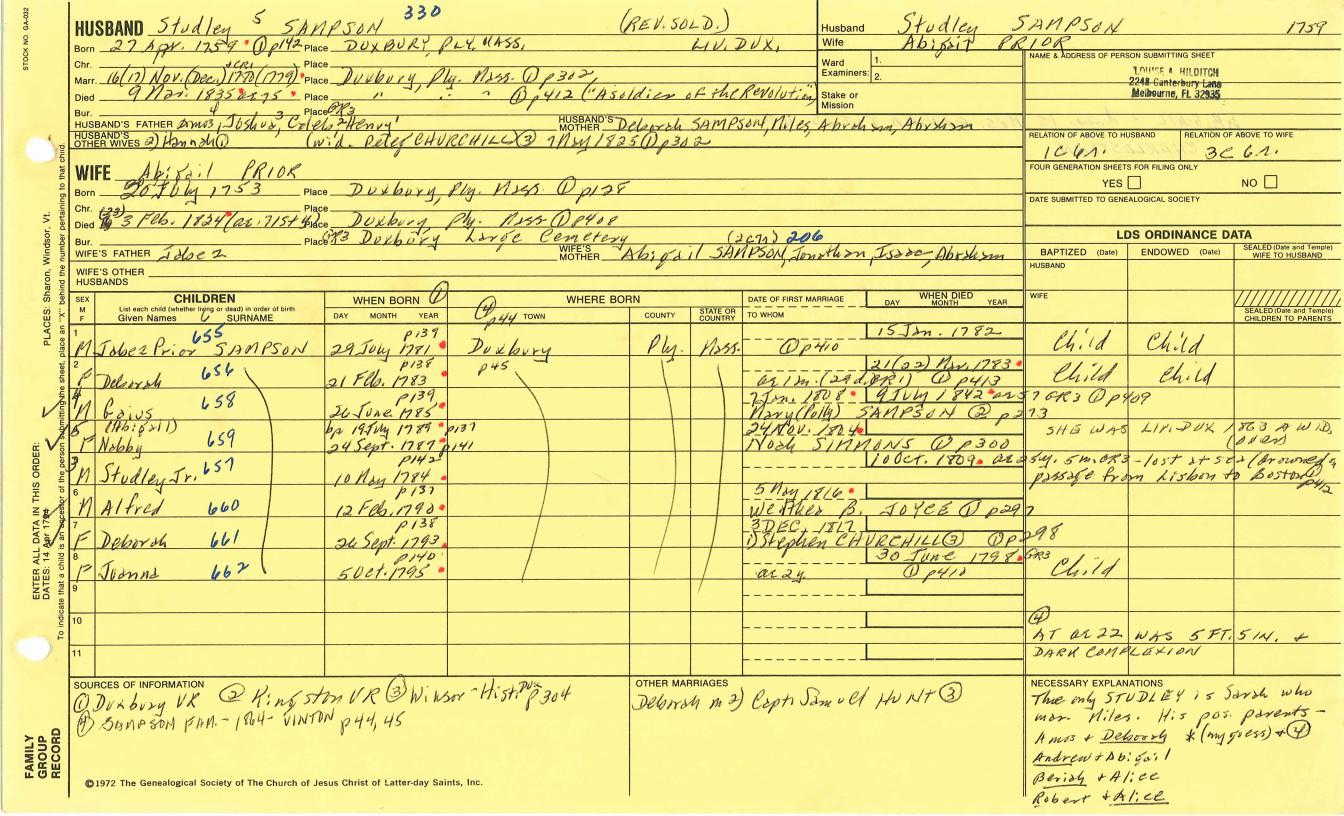 STOCK NO. GA-032
HUSBAND Studley 5 SAMPSON 330 (REV. SOLD.)
Born 27 Apr. 1759 ① p142 Place DUXBURY, PLY, MASS, LIV. DUX,
Chr. Place
Marr. 16(17) Nov. (Dec.) 1778 (1779) Place Duxbury, Ply. Mass. ① p302,
Died 9 Mar. 1835 ae 75 Place " " " ① p412 ("A soldier of the Revolution")
Bur. Place GR3
HUSBAND'S FATHER Amos,4 Joshua,3 Caleb,2 Henry1 HUSBAND'S MOTHER Deborah SAMPSON, Miles, Abraham, Abraham
HUSBAND'S OTHER WIVES 2) Hannah ① (wid. Peter CHURCHILL ③ 7 May 1825 ① p302
Husband Studley SAMPSON 1759
Wife Abigail PRIOR
Ward Examiners: 1.
2.
Stake or Mission
NAME & ADDRESS OF PERSON SUBMITTING SHEET
LOUISE A. HILDITCH
2248 Canterbury Lane
Melbourne, FL 32935
RELATION OF ABOVE TO HUSBAND RELATION OF ABOVE TO WIFE
1C 6r. 3C 6r.
FOUR GENERATION SHEETS FOR FILING ONLY
YES NO
DATE SUBMITTED TO GENEALOGICAL SOCIETY
WIFE Abigail PRIOR
Born 20 July 1753 Place Duxbury, Ply. Mass ① p128
Chr. Place
Died (23) 3 Feb. 1824 (ae. 71st y) Place Duxbury Ply. Mass ① p408
Bur. Place GR3 Duxbury Large Cemetery (2c7r) 206
WIFE'S FATHER Jabez WIFE'S MOTHER Abigail SAMPSON, Jonathan, Isaac, Abraham
WIFE'S OTHER HUSBANDS
LDS ORDINANCE DATA
BAPTIZED (Date) ENDOWED (Date) SEALED (Date and Temple) WIFE TO HUSBAND
HUSBAND
WIFE
SEALED (Date and Temple) CHILDREN TO PARENTS
SEX M F CHILDREN List each child (whether living or dead) in order of birth Given Names 6 SURNAME
WHEN BORN ① DAY MONTH YEAR
WHERE BORN ④ p44 TOWN COUNTY STATE OR COUNTRY
DATE OF FIRST MARRIAGE TO WHOM
WHEN DIED DAY MONTH YEAR
1 M Jabez Prior SAMPSON 655 p139 29 July 1781 Duxbury Ply. Mass. 15 Jan. 1782 ① p410 Child Child
2 F Deborah 656 p138 21 Feb. 1783 p45 21(22) Mar. 1783 ae 1m. (29d. GR1) ① p413 Child Child
4 M Gaius 658 p139, 26 June 1785 7 Jan. 1808 9 July 1842 ae 57 GR3 ① p409 Mary (Polly) SAMPSON ② p273
5 F (Abigail) Nabby 659 bp 19 July 1789 p137 24 Sept. 1787 p141 24 Nov. 1824 Noah SIMMONS ① p300 SHE WAS LIV. DUX 1863 A WID, (over)
3 M Studley Jr. 657 p142 10 May 1784 10 Oct. 1809 ae 25y. 5m. GR3 - lost at sea (drowned a passage from Lisbon to Boston ① p412
6 M Alfred 660 p137 12 Feb. 1790 5 May 1816 Wealthea B. JOYCE ① p297
7 F Deborah 661 p138 26 Sept. 1793 3 DEC. 1817 1) Stephen CHURCHILL ③ ① p298
8 F Joanna 662 p140 5 Oct. 1795 30 June 1798 GR3 ae 2y. ① p410 Child
9
10
11
④
AT ae 22 WAS 5 FT. 5 IN. +
DARK COMPLEXION
SOURCES OF INFORMATION
① Duxbury VR ② Kingston VR ③ Winsor - Hist. Dux p304
④ SAMPSON FAM. - 1864 - VINTON p44, 45
OTHER MARRIAGES
Deborah m 2) Capt. Samuel HUNT ③
NECESSARY EXPLANATIONS
The only STUDLEY is Sarah who
mar. Miles. His pos. parents -
Amos + Deborah * (my guess) + ④
Andrew + Abigail
Beriah + Alice
Robert + Alice
©1972 The Genealogical Society of The Church of Jesus Christ of Latter-day Saints, Inc.
FAMILY GROUP RECORD
ENTER ALL DATA IN THIS ORDER:
DATES: 14 Apr 1794
PLACES: Sharon, Windsor, Vt.
To indicate that a child is an ancestor of the person submitting the sheet, place an "X" behind the number pertaining to that child.